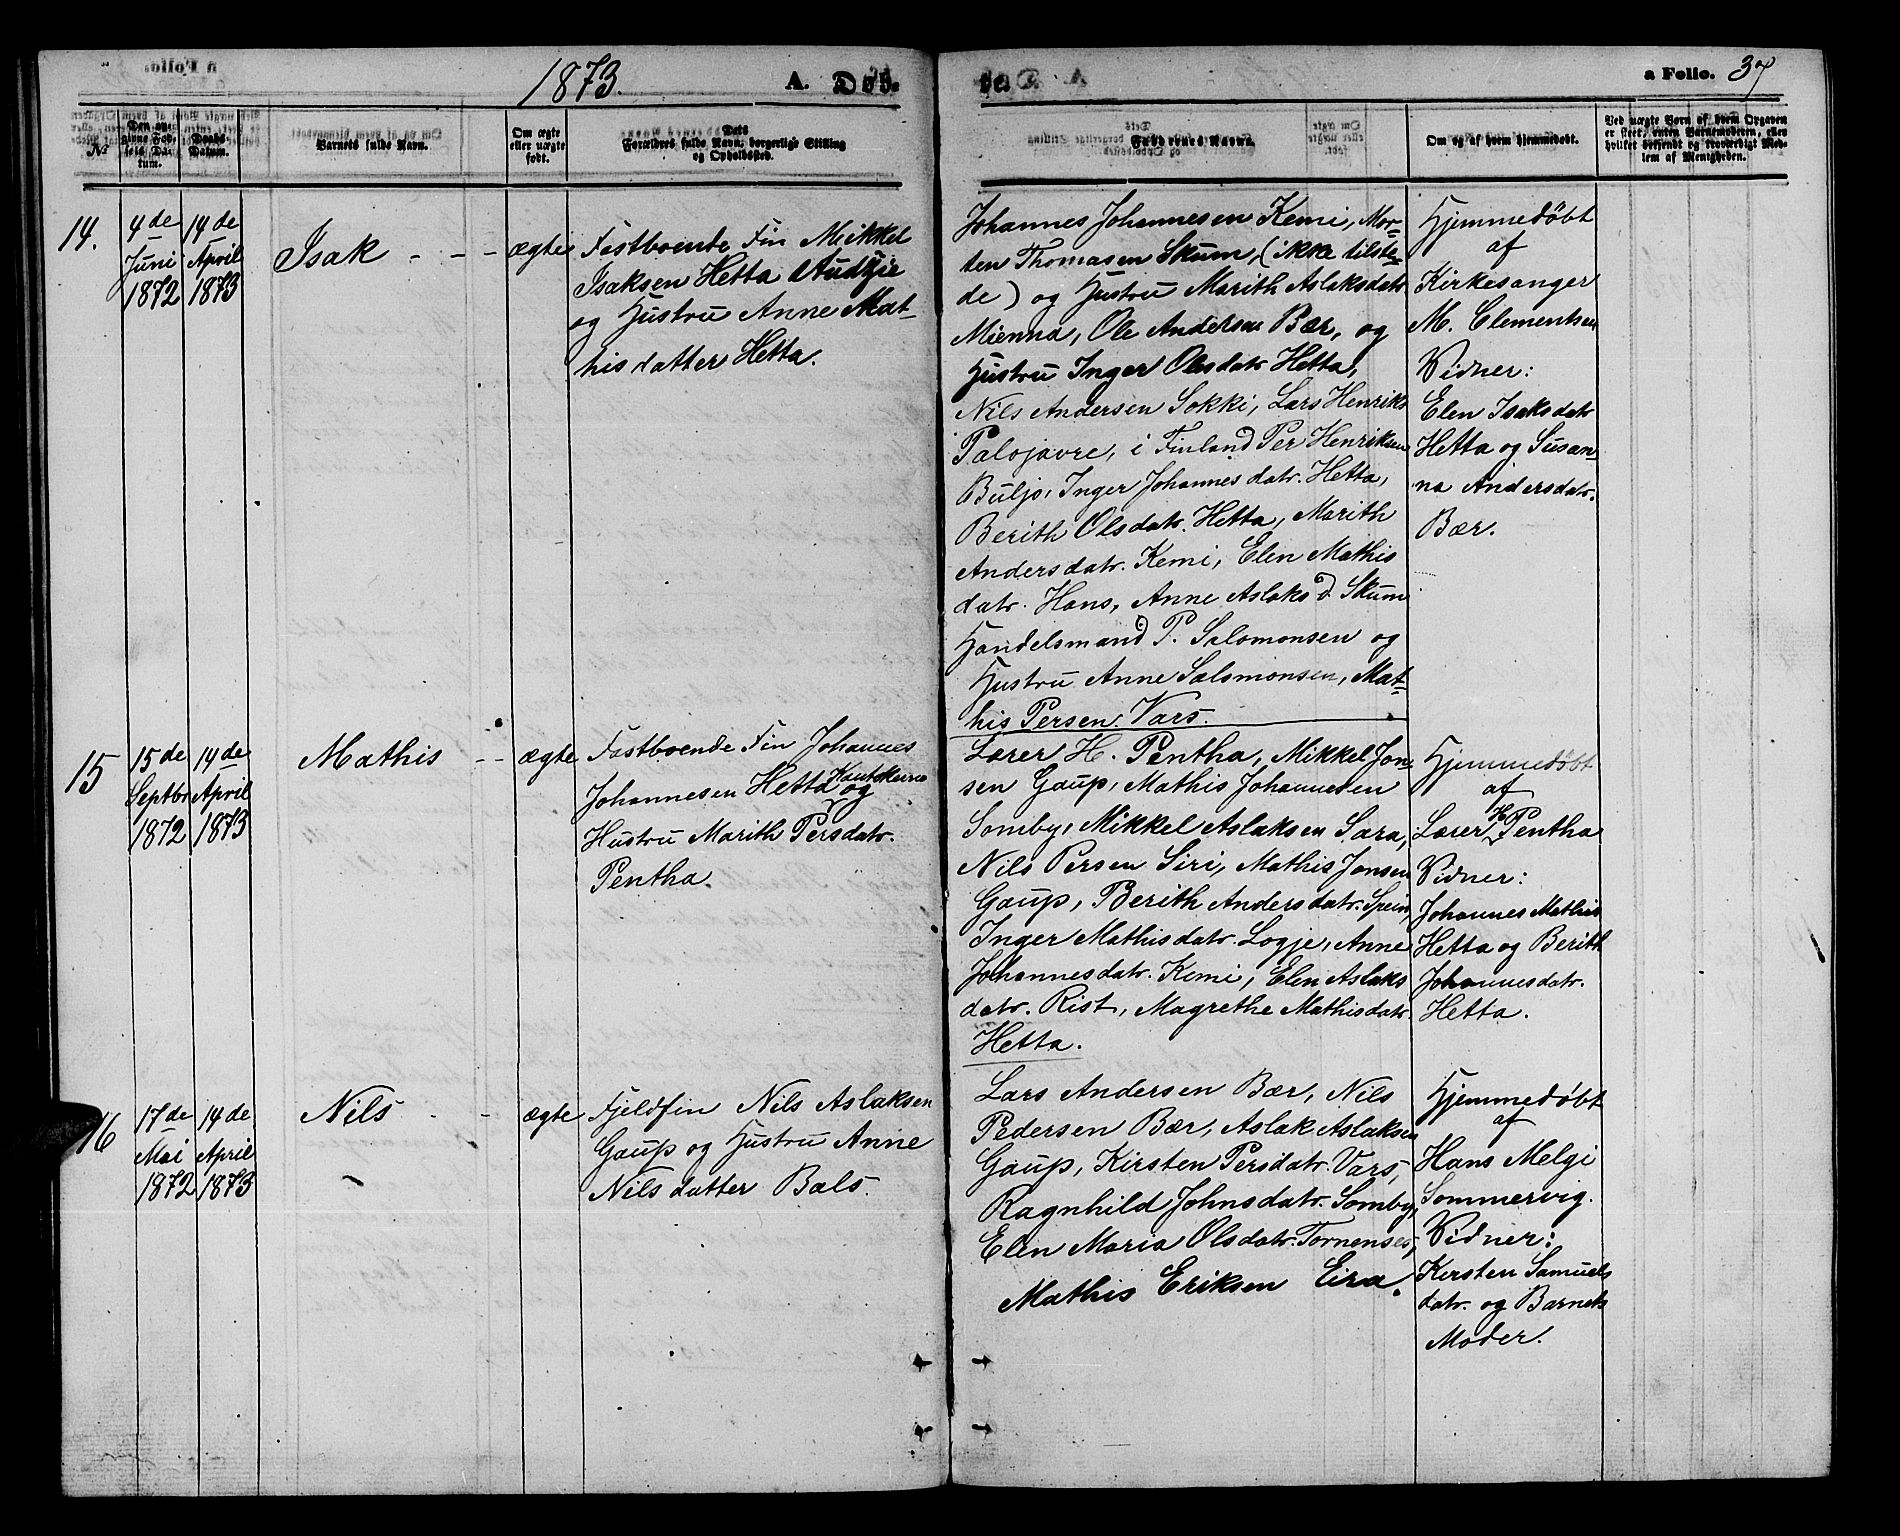 1873.
A. Døb
te.
a Folio. 37
№
Den angivne Fødsels Datum.
Daabs Datum.
Barnets fulde Navn.
Om ægte eller uægte født.
Dets Forældres fulde Navn, borgerlige Stilling og Opholdssted.
Faddernes Navne.
Om og af hvem hjemmedøbt.
Ved uægte Børn af hvem Opgaven er skeet, enten Barnemoderen, eller hvilket bekjendt og troværdigt Medlem af Menigheden.
14.
4de
Juni
1872
14de
April
1873
Isak - - -
ægte
Fastboende Fin Mikkel
Isaksen Hetta Audzje
og Hustru Anne Mat-
hisdatter Hetta.
Johannes Johannesen Kemi, Mor-
ten Thomasen Skum, (ikke tilste-
de) og Hustru Marith Aslaksdatr
Mienna, Ole Andersen Bær, og
Hustru Inger Olsdatr Hetta,
Nils Andersen Sokki, Lars Henriks
Palojavre, i Finland Per Henriksen
Buljo, Inger Johannesdatr. Hetta,
Berith Olsdatr. Hetta, Marith
Andersdatr. Kemi, Elen Mathis
datr. Hans, Anne Aslaksd. Skum
Handelsmand P. Salomonsen og
Hustru Anne Salomonsen, Mat-
his Persen Vars.
Hjemmedøbt
af
Kirkesanger
M. Clementsen
Vidner:
Elen Isaksdatr
Hetta og Susan-
na Andersdatr.
Bær.
15
15de
Septbr
1872
14de
April
1873
Mathis - -
ægte
Fastboende Fin Johannes
Johannesen Hetta Kautokeino og
Hustru Marith Persdatr.
Pentha.
Lærer H. Pentha, Mikkel Jon-
sen Gaup, Mathis Johannesen
Somby, Mikkel Aslaksen Sara,
Nils Persen Siri, Mathis Jonsen
Gaup, Berith Andersdatr. Spein,
Inger Mathisdatr. Logje, Anne
Johannesdatr. Kemi, Elen Aslaks
datr. Rist, Magrethe Mathisdatr.
Hetta.
Hjemmedøbt
af
Lærer H. Pentha
Vidner:
Johannes Mathis
Hetta og Berith
Johannesdatr.
Hetta.
16
17de
Mai
1872
14de
April
1873
Nils - -
ægte
Fjeldfin Nils Aslaksen
Gaup og Hustru Anne
Nilsdatter Bals.
Lars Andersen Bær, Nils
Pedersen Bær, Aslak Aslaksen
Gaup, Kirsten Persdatr. Vars,
Ragnhild Johnsdatr. Somby,
Elen Maria Olsdatr. Tornenses,
Mathis Eriksen Eira.
Hjemmedøbt
af
Hans Melgi
Sommervig.
Vidner:
Kirsten Samuels
datr. og Barnets
Moder.